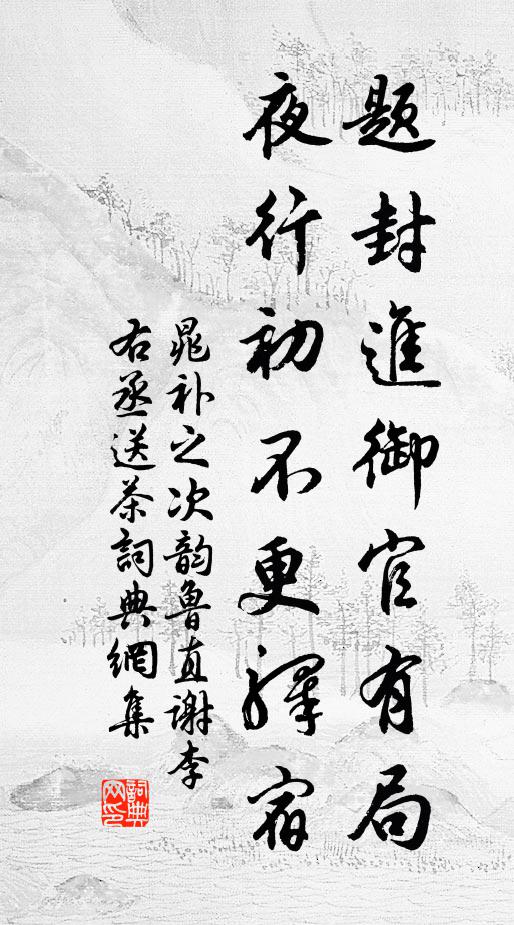 题封進御官有局
夜行初不更驛宿
晁补之次韵魯直谢李
右丞送茶詞典網集
詞典
网印